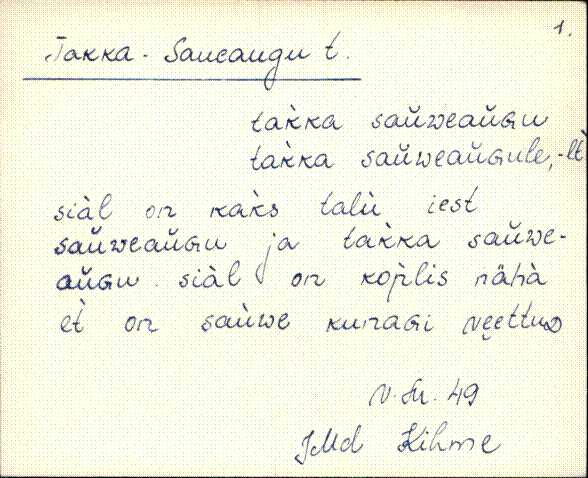 1.
Takka-Saueaugu t.
tak̀ka saŭweaŭGu
tak̀ka saŭweaŭGule, -lt̀
siàl on kak̀s talù iest
saŭweaŭGu ja tak̀ka saŭwe-
aŭGu. siàl on kop̀lis nähà
et̀ on saùwe kunaGi veettuD
V. Sn. 49
Kihme